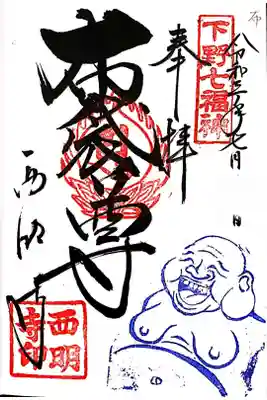 布
八
令和三年七月 日
下野七福神
奉拝
布袋尊
西明寺
西明
寺印